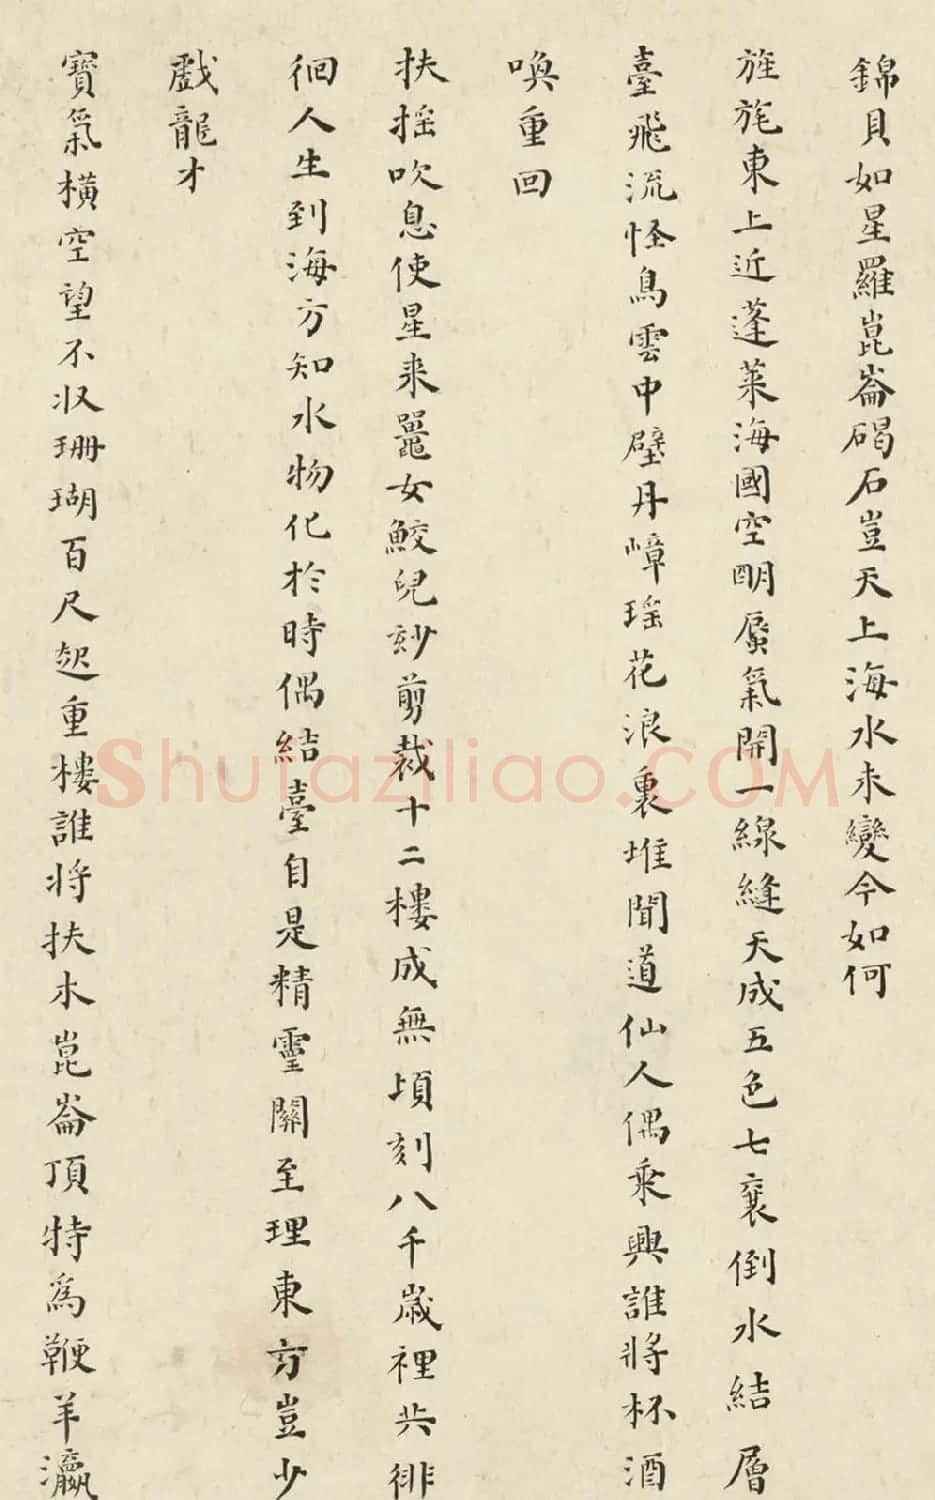 錦貝如星羅崑崙碣石豈天上海水未變今如何
旌旄東上近蓬萊海國空明蜃氣開一線縫天成五色七襄倒水結層
臺飛流怪鳥雲中壁丹嶂瑤花浪裏堆聞道仙人偶乘興誰將杯酒
喚重回
扶搖吹息使星来鼉女鮫兒妙剪裁十二樓成無頃刻八千歲裡共徘
徊人生到海方知水物化於時偶結臺自是精靈關至理東方豈少
戲龍才
寶氣橫空望不收珊瑚百尺起重樓誰將扶木崑崙頂特為鞭羊瀛
Shufaziliao.COM